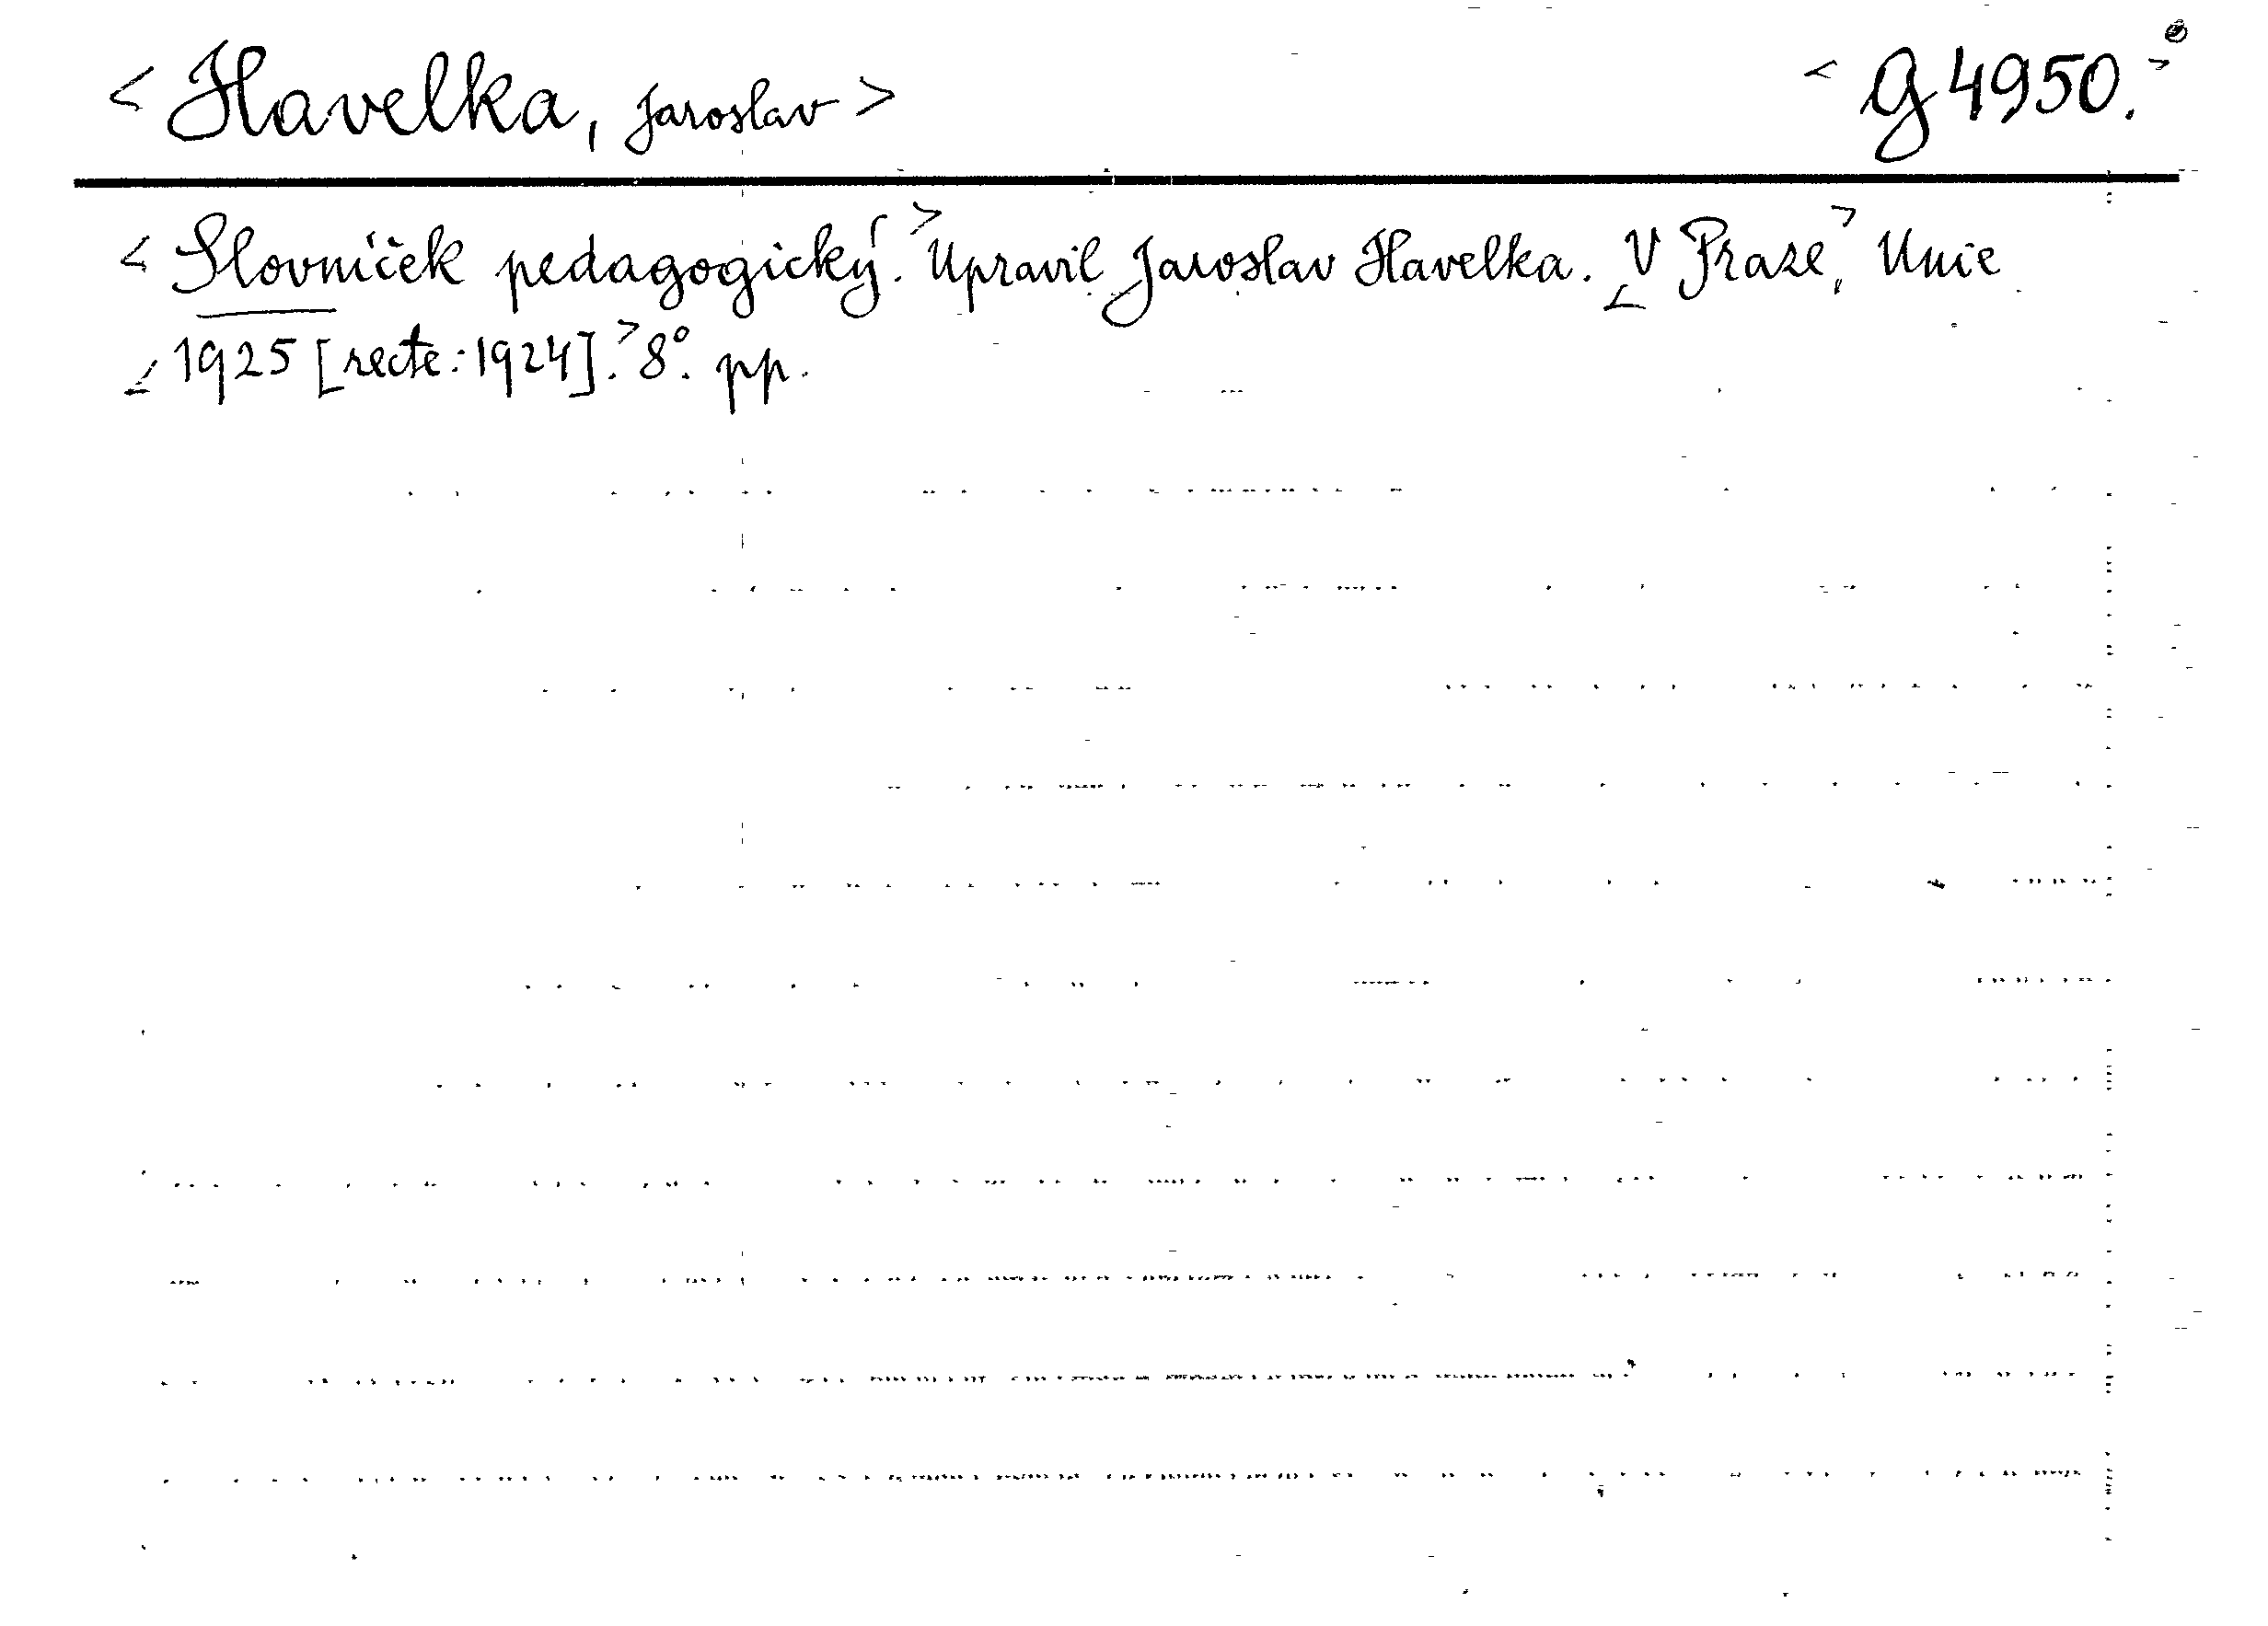 < Havelka, Jaroslav > < G 4950. >
< Slovníček pedagogický. > Upravil Jaroslav Havelka. < V Praze, > Unie
< 1925 [recte: 1924]. > 8°. pp.